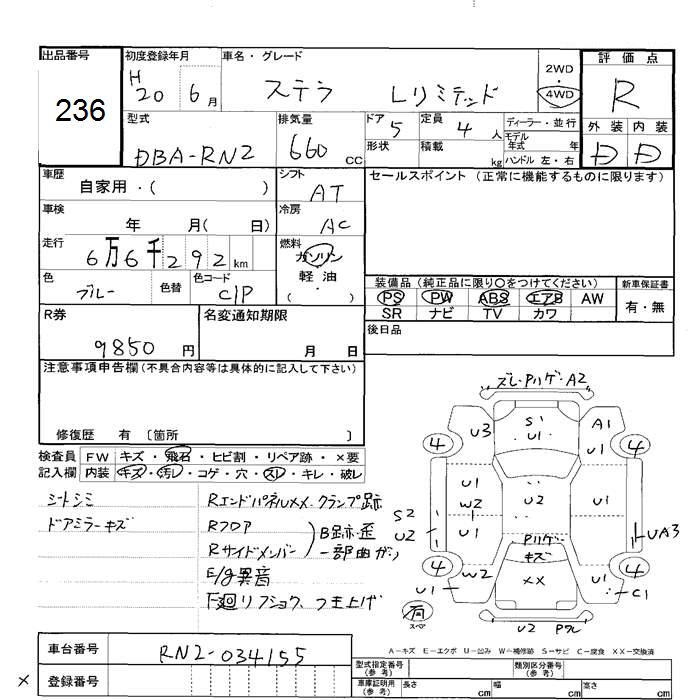 出品番号
236
初度登録年月
H 20 6月
車名・グレード
ステラ Lリミテッド
2WD
4WD
評価点
R
型式
DBA-RN2
排気量
660 CC
ドア 5
定員 4人
形状
積載 kg
ディーラー・並行
モデル年式 年
ハンドル 左・右
外装 内装
D D
車歴
自家用・( )
シフト
AT
セールスポイント (正常に機能するものに限ります)
車検
年 月( 日)
冷房
AC
走行
6万6千292km
燃料
ガソリン
軽・油
( )
色
ブルー
色替
色コード
C1P
装備品 (純正品に限り○をつけてください)
PS PW ABS エアB AW
SR ナビ TV カワ
新車保証書
有・無
R券
9850 円
名変通知期限
月 日
後日品
注意事項申告欄(不具合内容等は具体的に記入して下さい)
修復歴 有 〔箇所 〕
検査員記入欄
FW キズ・飛石・ヒビ割・リペア跡・×要
内装 キズ・汚レ・コゲ・穴・スレ・キレ・破レ
シートシミ
ドアミラーキズ
RエンドパネルXX.クランプ跡
Rフロア
Rサイドメンバー
B跡歪
一部曲ガリ
E/g異音
下廻リフショク、つき上げ
ズレ・Pハゲ・A2
U3
S1
U1
A1
U1
4
4
U1
W2
U1
U2
U1
S2
U2
UA3
Pハゲ・
キズ
XX
4
4
U1
W2
U1
C1
有
スペア
U2
A-キズ E-エクボ U-凹み W-補修跡 S-サビ C-腐食 XX-交換済
車台番号
RN2-034155
登録番号
×
型式指定番号
(参考)
類別区分番号
(参考)
車庫証明用
(参考)
長さ cm 幅 cm 高さ cm